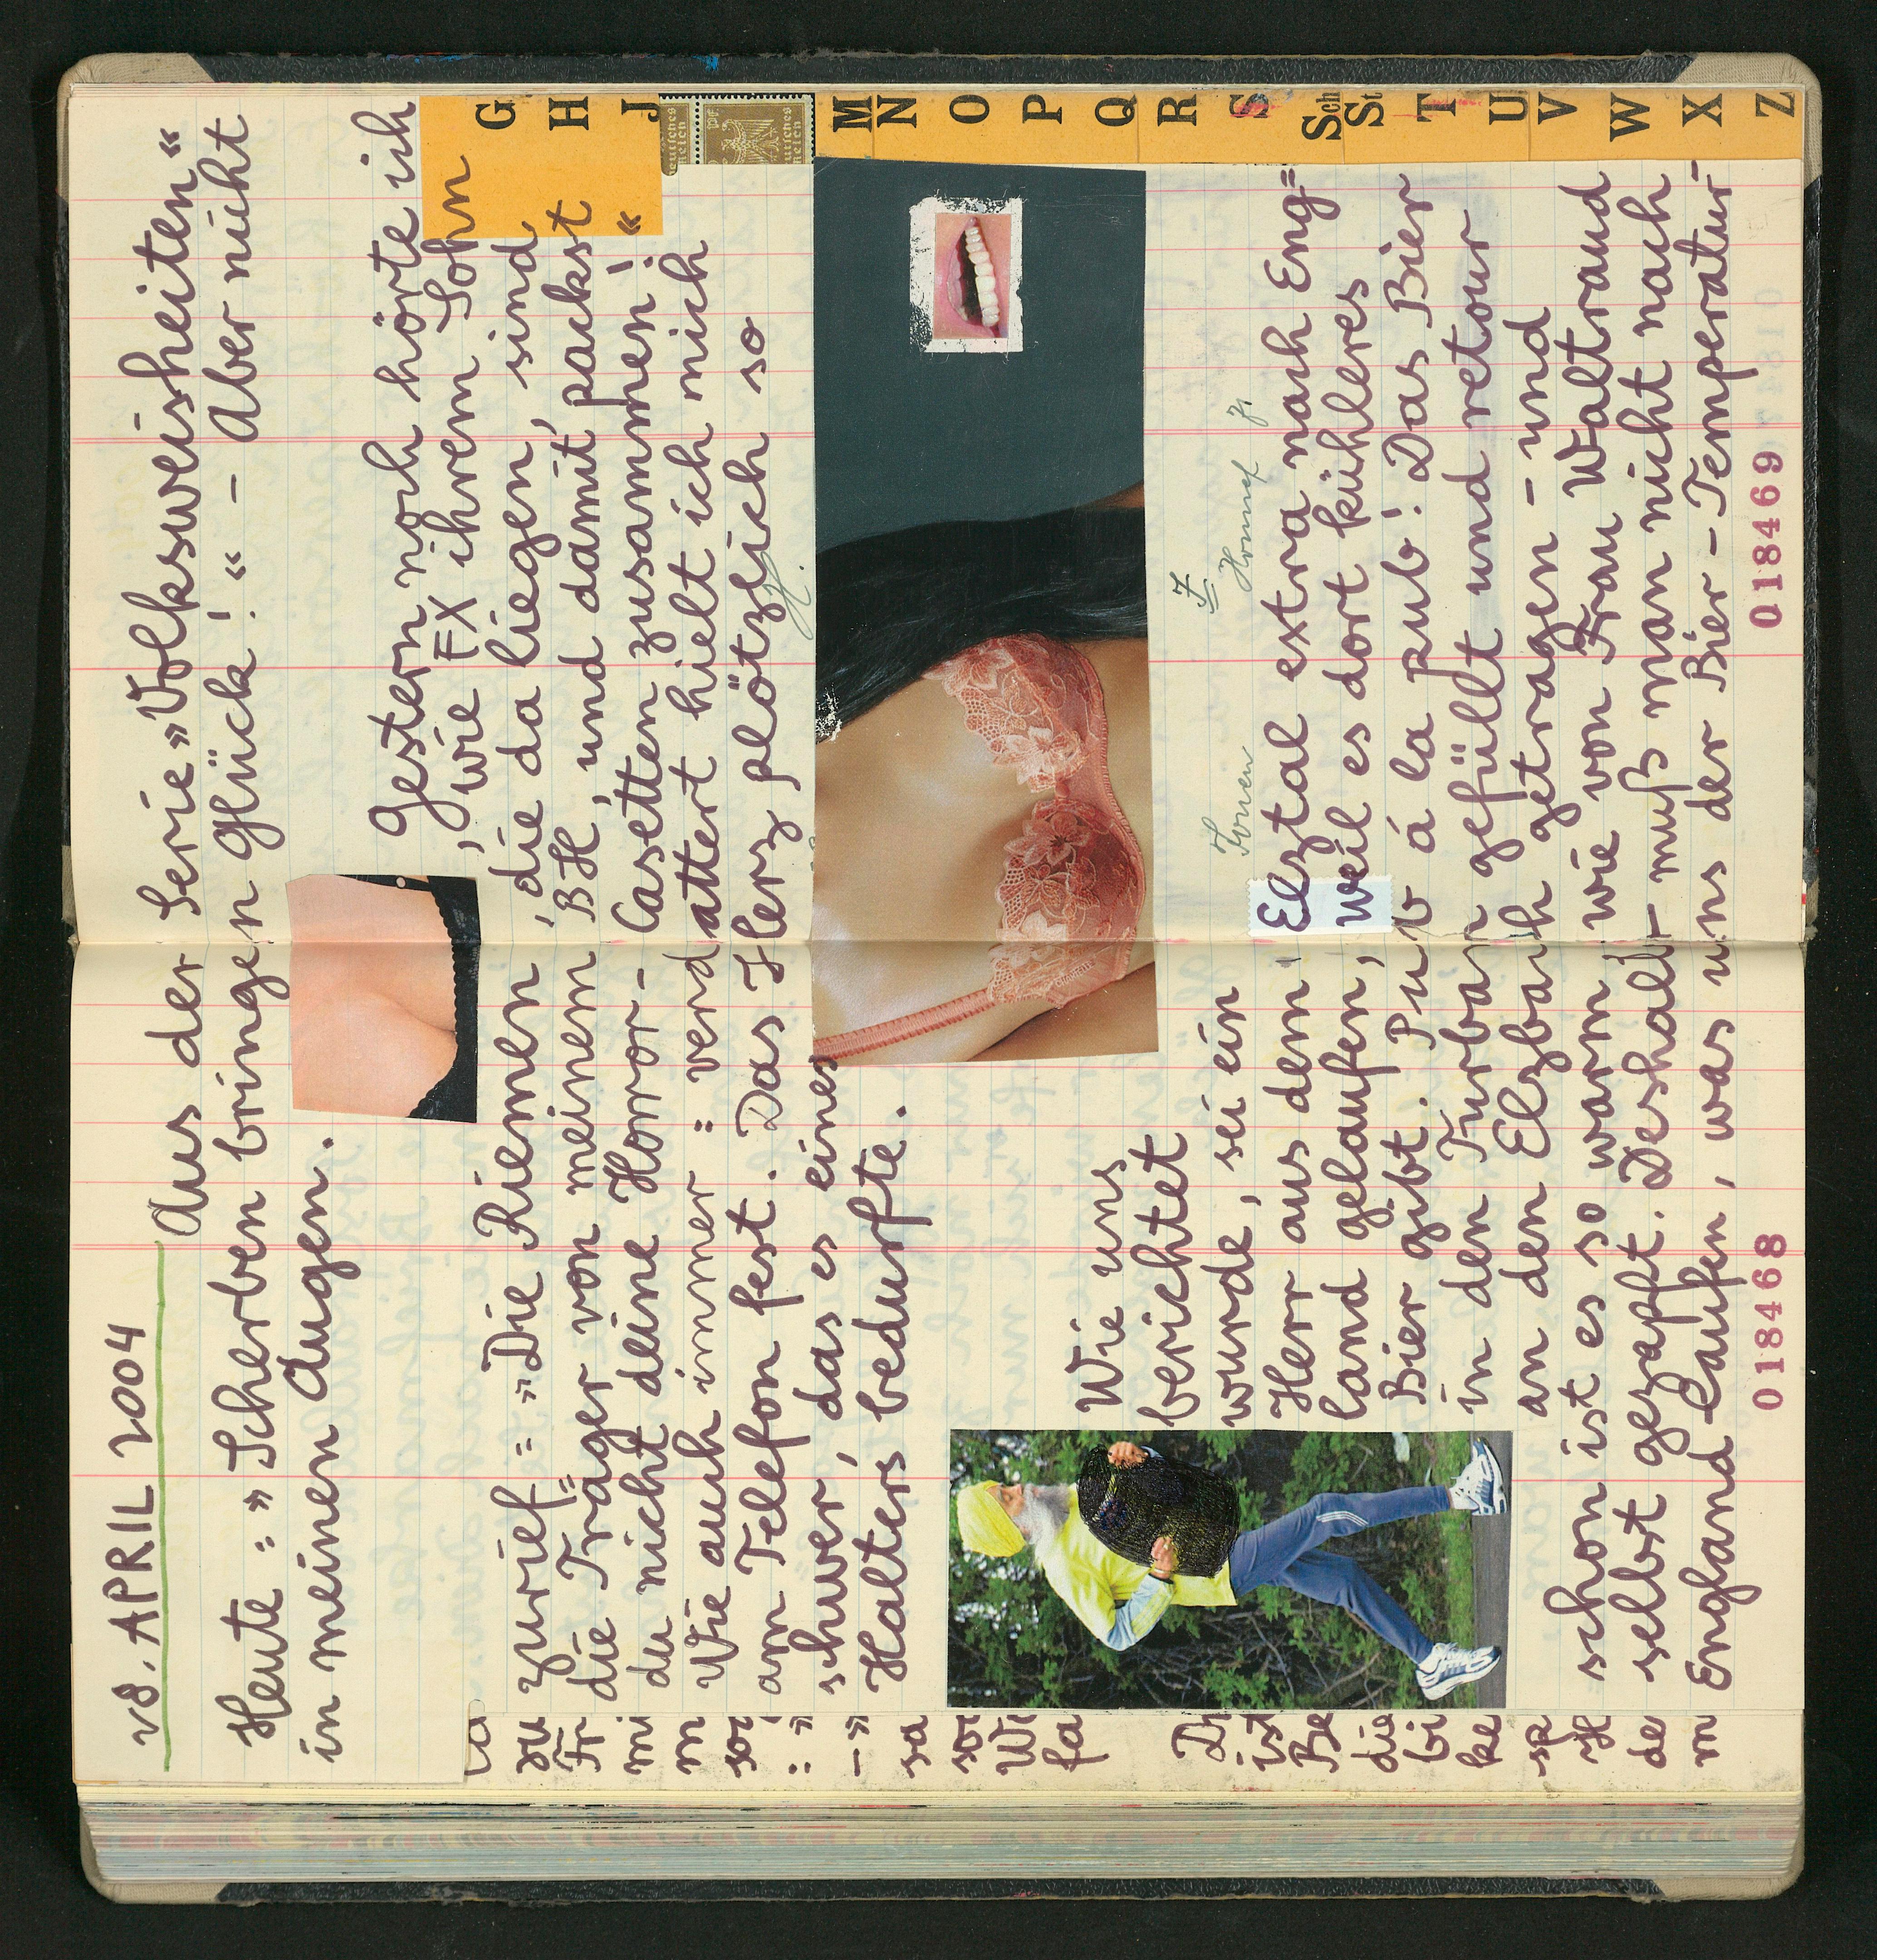 18. APRIL 2004
Aus der Serie »Volksweisheiten«
Heute : »Scherben bringen Glück!« – Aber nicht
in meinen Augen.
Gestern noch hörte ich
, wie FX ihrem Sohn
zurief = »Die Riemen , die da liegen, sind
die Träger von meinem BH, und damit packst
du nicht deine Horror- Casetten zusammen!«
Wie auch immer = verdattert hielt ich mich
am Telefon fest. Das Herz plötzlich so
schwer, das es eines
Halters bedurfte.
Wie uns
berichtet
wurde, sei ein
Herr aus dem Elztal extra nach Eng=
land gelaufen, weil es dort kühleres
Bier gibt. Pub á la pub! Das Bier
in den Turban gefüllt und retour
an den Elzbach getragen – und
schon ist es so warm, wie von Frau Waltraud
selbst gezapft. Deshalb muß man nicht nach
England laufen, was uns der Bier-Temperatur-
018468
018469
G
H
J
M
N
O
P
Q
R
S
Sch
St
T
U
V
W
X
Z